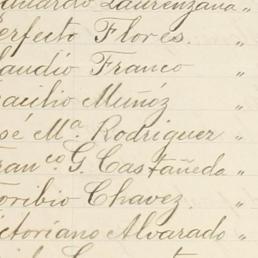 duardo Laurenzana "
erfecto Flores. "
laudio Franco "
acilio Muñóz "
sé Mª. Rodriguez "
ran.co G. Castañeda "
oribio Chavez. "
ictoriano Alvarado "